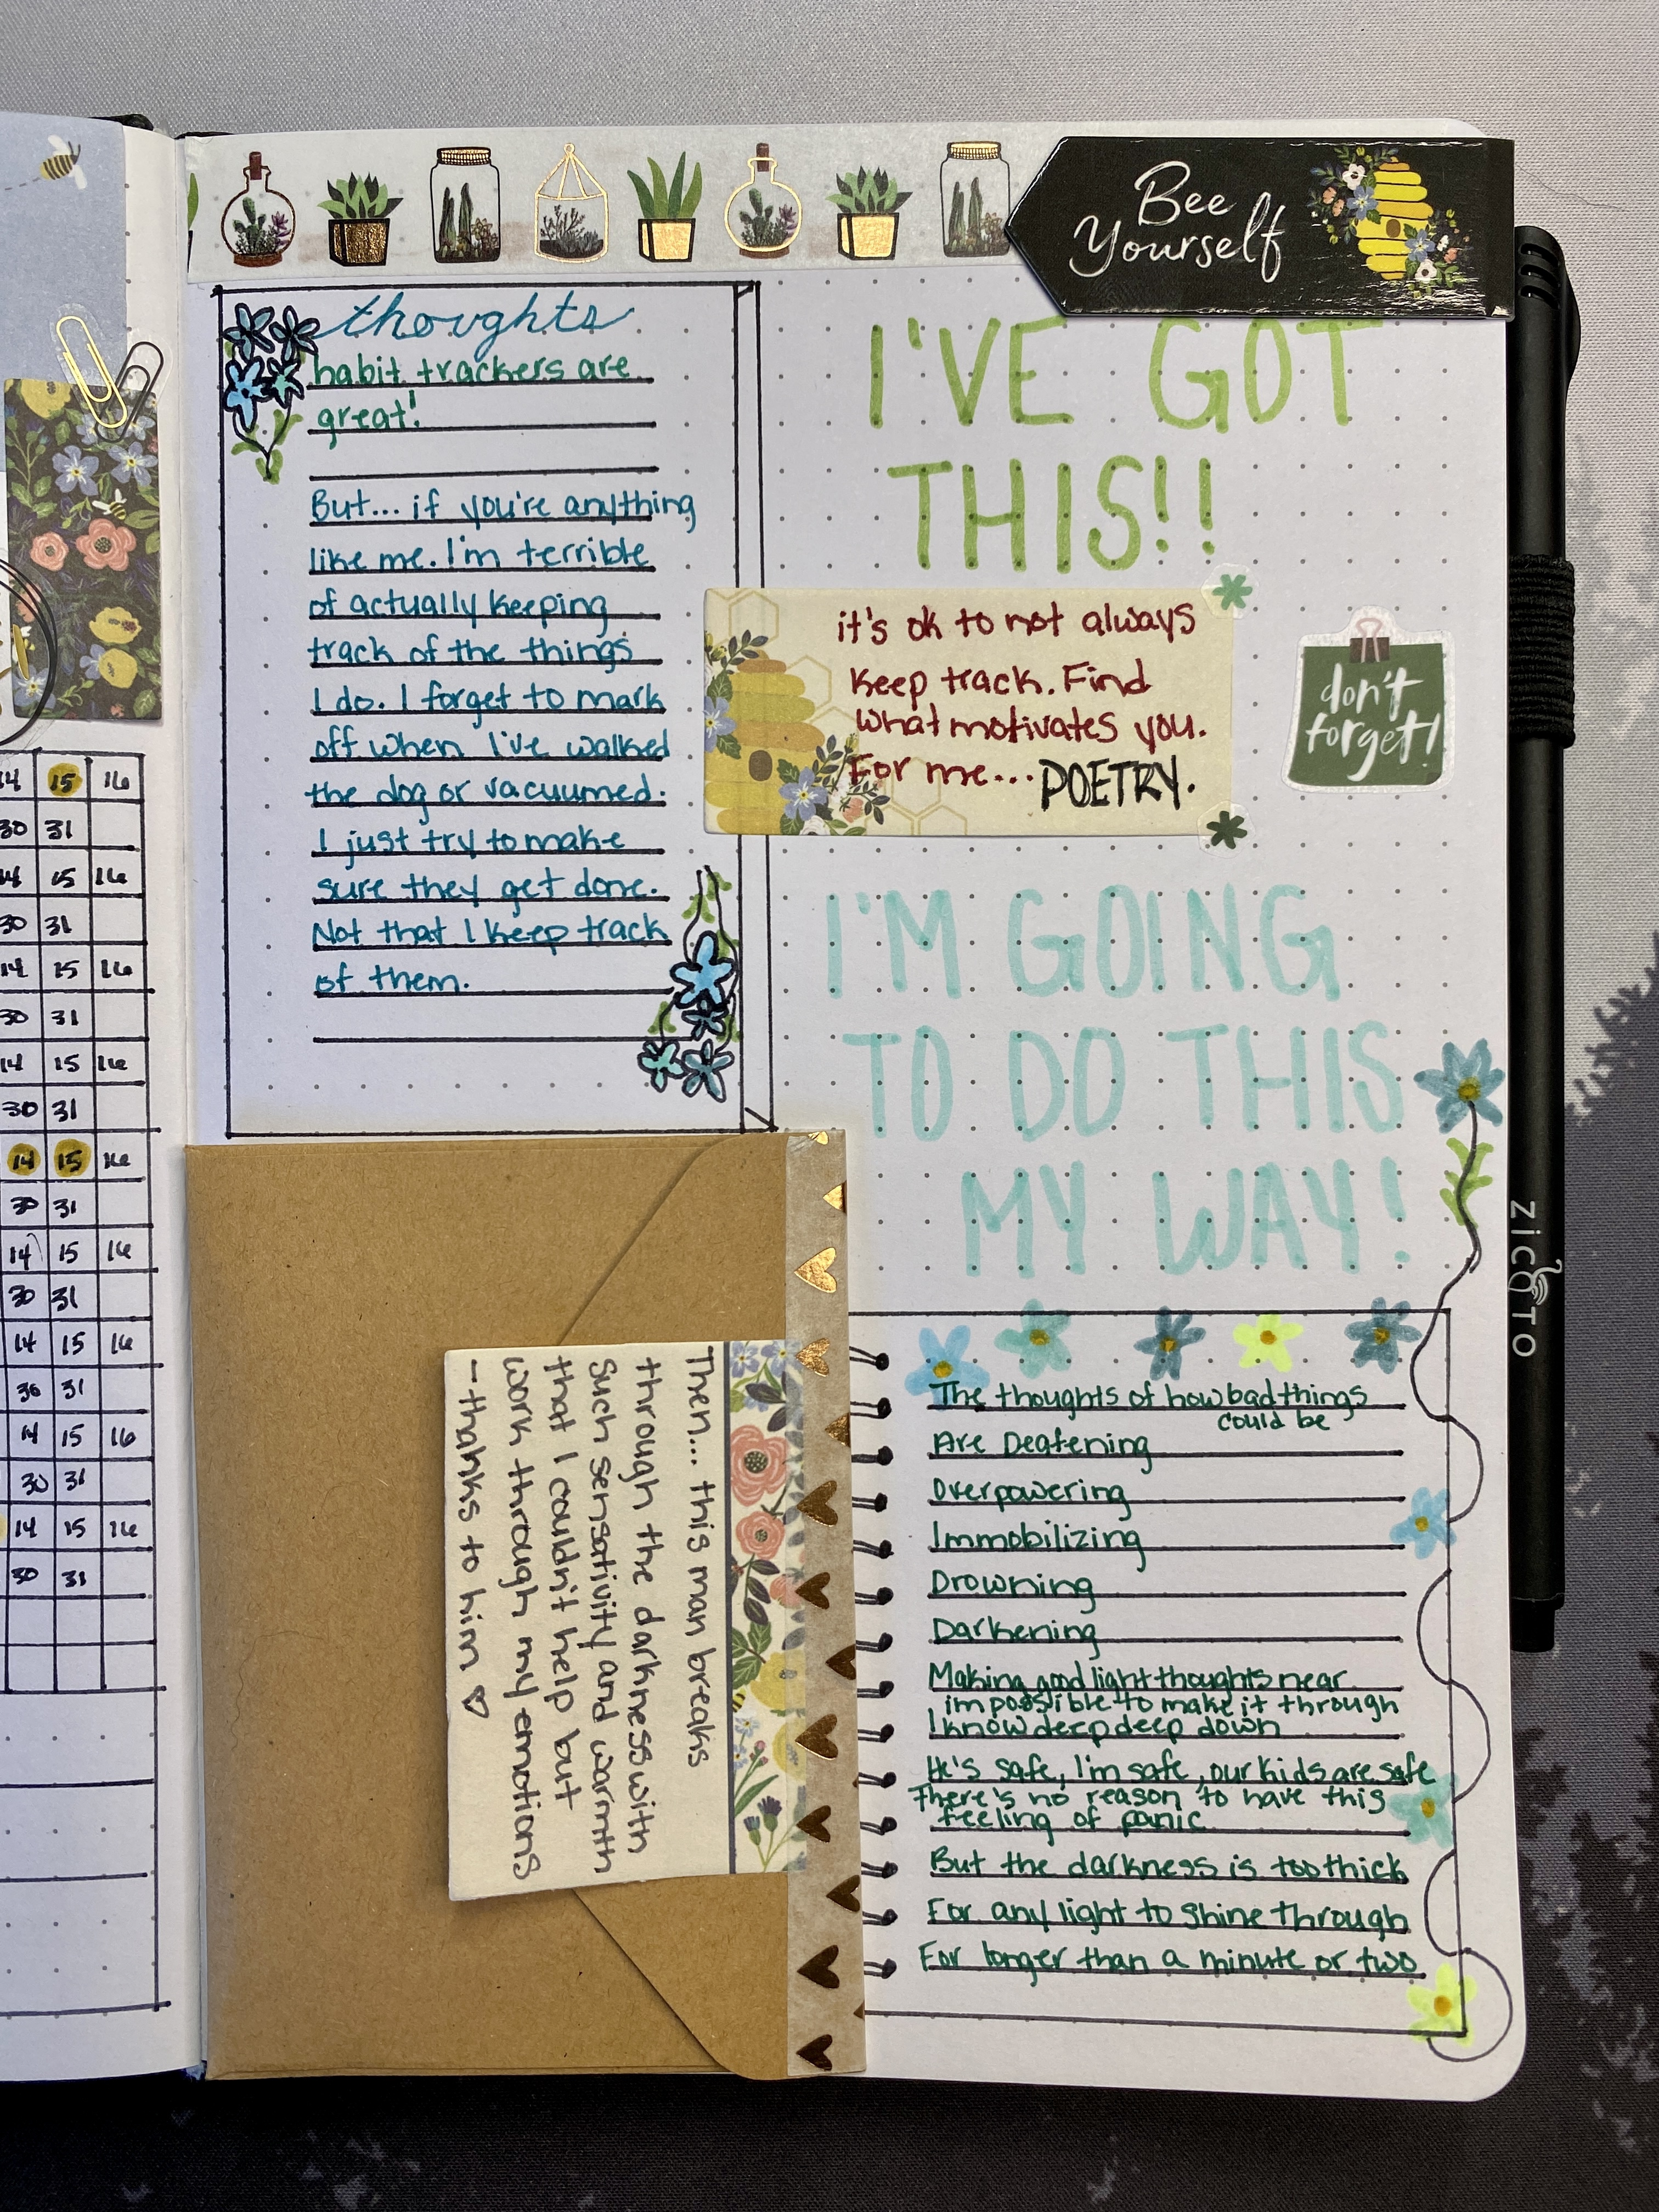 Bee
Yourself
thoughts
habit trackers are
great!
But... if you're anything
like me. I'm terrible
of actually keeping
track of the things
I do. I forget to mark
off when I've walked
the dog or vacuumed.
I just try to make
sure they get done.
Not that I keep track
of them.
I'VE GOT
THIS!!
it's ok to not always
keep track. Find
what motivates you.
For me... POETRY.
don't
forget!
I'M GOING
TO DO THIS
MY WAY!
14 15 16
30 31
14 15 16
30 31
14 15 16
30 31
14 15 16
30 31
14 15 16
30 31
14 15 16
30 31
14 15 16
30 31
14 15 16
30 31
14 15 16
30 31
Then... this man breaks
through the darkness with
such sensativity and warmth
that I couldn't help but
work through my emotions
- thanks to him
The thoughts of how bad things
could be
Are Deafening
Overpowering
Immobilizing
Drowning
Darkening
Making good light thoughts near
impossible to make it through
I know deep deep down
He's safe, I'm safe, our kids are safe
There's no reason to have this
feeling of panic
But the darkness is too thick
For any light to shine through
For longer than a minute or two
zicoto